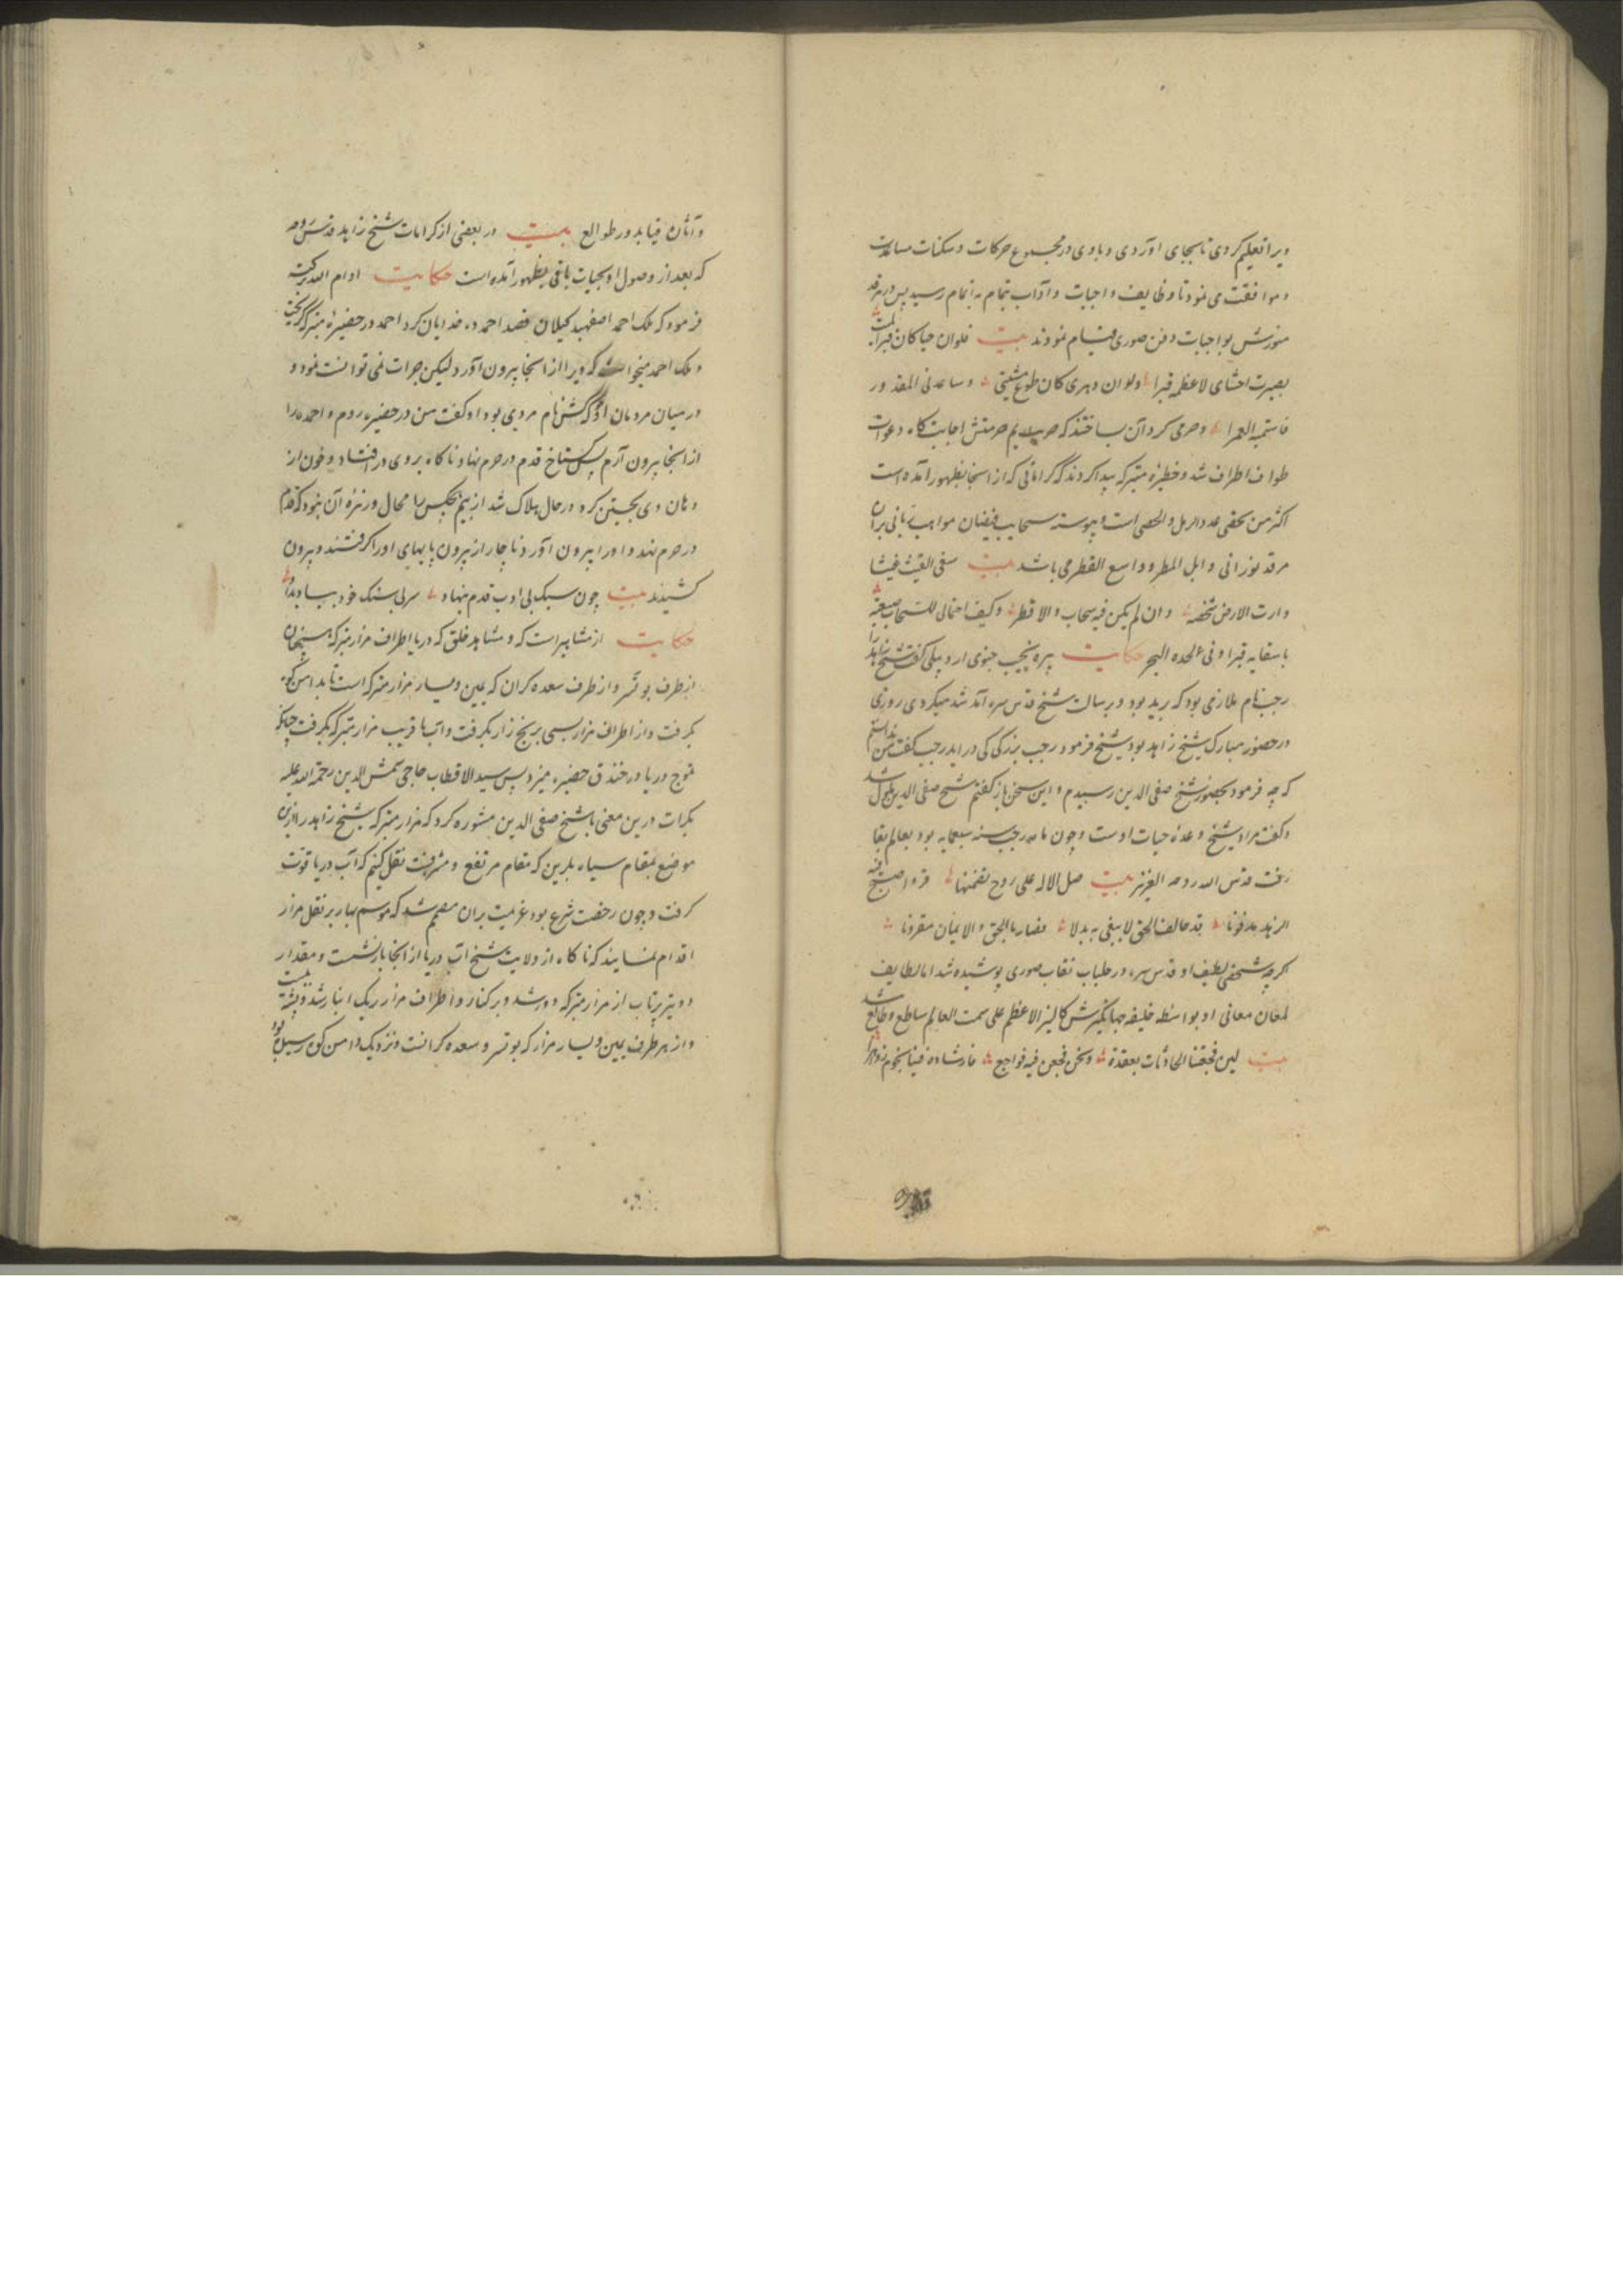 ویرا تعلیم کردی تا بجای آوردی و با وی در مجموع حرکات و سکنات مساعدت
و موافقت می نمود تا وظایف واجبات و آداب تمام به اتمام رسید پس در مرقد
منورش بواجبات دفن صوری قیام نمودند بیت فلو ان حیا کان قبرا لمیت
بصیرت احشای لاعظمه قبرا ولو ان دهری کان طوع مشیتی وساعدنی المقدور
فاستمه العمرا و حرمی کرد آن ساختند که حریم حرمتش اجابت کاه دعوات
طواف اطراف شد و خطیره متبرکه پیدا کردند که کراماتی که از اینجا بظهور آمده است
اکثر من تحصی عدد الرمل والحصی است و پیوسته سحایب فیضان مواهب ربانی بران
مرقد نورانی وابل المطر و واسع القطر می باشد بیت سقی الغیث غیثا
وارت الارض شخصه وان لم یکن فیه سحاب ولا قطر وکیف احتمالی للسحاب صنیعه
باسقایه قبرا وفی لحده البحر حکایت پیره نجیب جنوی اردبیلی گفت شیخ زاهد را
رجب نام ملازمی بود که برید بود و برسالت شیخ قدس سره آمد شد میکردی روزی
در حضور مبارک شیخ زاهد بود شیخ فرمود رجب بزرکی کی در اید رجب گفت من ندانستم
که چه فرمود بحضور شیخ صفی الدین رسیدم و این سخن باز کفتم شیخ صفی الدین ملول شد
و گفت مراد شیخ وعده حیات اوست و چون ماه رجب سنه سبعمایه بود بعالم بقا
رفت قدس الله روحه العزیز بیت صل الاله علی روح تضمنها قبر واصبح فیه
الزهد مدفونا قد حالف الحق لا یبغی به بدلا فصار بالحق والایمان مقرونا
اکرچه شخص لطیف او قدس سره در جلباب نقاب صوری پوشیده شد اما لطایف
لمعان معانی او بواسطه خلیفه جهانگیرش کالنیر الاعظم علی سمت العالم ساطع و طالع شد
بیت لین فجعتنا الحادثات بعقده ونحن فجعن فیه فواجع فارشاده فینا نجوم زواهر
وآثاره فینا بدور طوالع بیت در بعضی از کرامات شیخ زاهد قدس روحه
که بعد از وصول او بحیات باقی بظهور آمده است حکایت ادام الله برکته
فرمود که ملک احمد اصفهبد کیلان قصد احمد ده خدایان کرد احمد در حضیره متبرکه گریخت
و ملک احمد میخواست که ویرا از انجا بیرون آورد لیکن جرات نمی توانست نمود و
در میان مردمان او نام مردی بود او گفت من در حضیره روم و احمد را
از انجا بیرون آرم پس گستاخ قدم در حرم نهاد ناکاه بروی در افتاد و خون از
دهان وی بجستن کرد و در حال هلاک شد از بیم هیچکس را مجال و زهره آن نبود که قدم
در حرم نهد و او را بیرون آورد ناچار از بیرون پایهای او را گرفتند و بیرون
کشیدند بیت چون سبک بی ادب قدم بنهاد سر بی سنک خود بباد بداد
حکایت از مشاهیر است که و مشاهد خلق که دریا اطراف مزار متبرکه
از طرف بوتسر و از طرف سعده کران که یمین و یسار مزار متبرکه است تا بدامن کوه
بگرفت و از اطراف مزار بسی برنج زار بگرفت و آب تا قریب مزار متبرکه بگرفت چنانکه
موج دریا در خندق حضیره میزد پس سید الاقطاب حاجی شمس الدین رحمة الله علیه
بکرات درین معنی با شیخ صفی الدین مشوره کرد که مزار متبرکه شیخ زاهد را ازین
موضع بمقام سیاه بلدین که مقام مرتفع و مشرفست نقل کنیم که آب دریا قوت
گرفت و چون رخصت شرع بود عزیمت بران مصمم شد که موسم بهار بر نقل مزار
اقدام نمایند که ناکاه از ولایت شیخ آب دریا از انجا باز نشست و مقدار
دو تیر پرتاب از مزار متبرکه دور شد و بر کنار و اطراف مزار ریک انبار شد و پشته بست
و از هر طرف یمین و یسار مزار که بوتسر و سعده کرانست و نزدیک دامن کوه رسیده بود